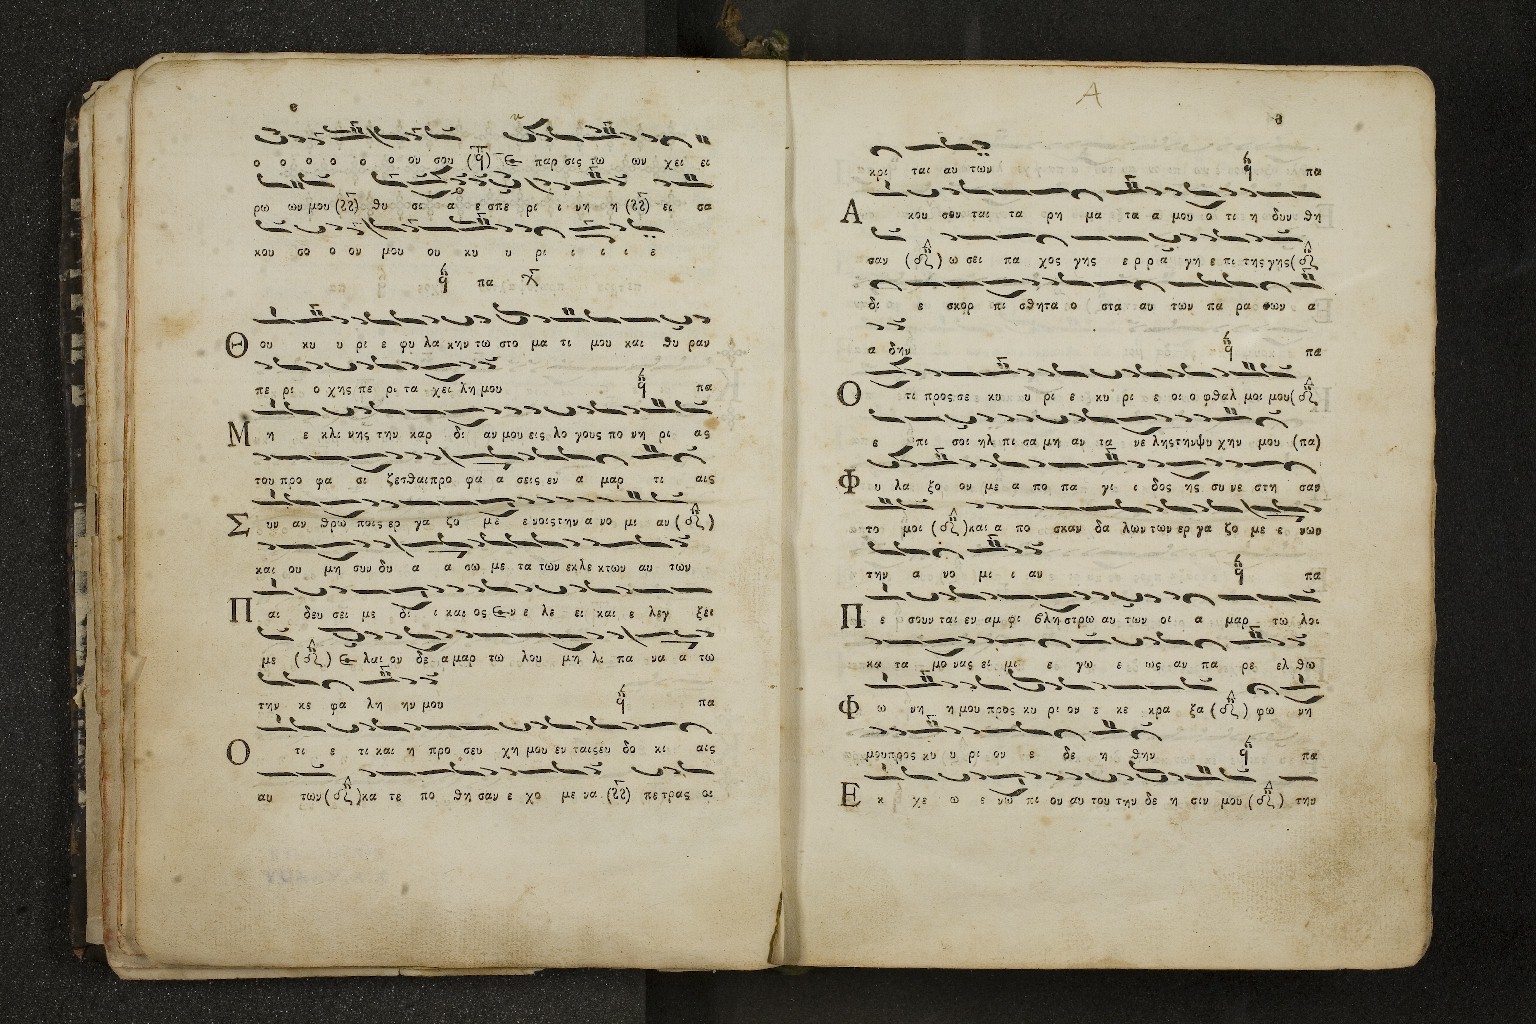 ε
ο ο ο ο ο ο ου σου (π̅ q) Ε παρ σις τω ων χει ει
ρω ων μου (ζζ) θυ σι α ε σπε ρι ι νη η (ζζ) ει σα
κου σο ο ον μου ου κυ υ ρι ι ι ι ε
q πα χ
Θ ου κυ υ ρι ε φυ λα κην τω στο μα τι μου και θυ ραν
πε ρι ο χης πε ρι τα χει λη μου q πα
Μ η ε κλι νης την καρ δι αν μου εις λο γους πο νη ρι ας
του προ φα σι ζεσθαι προ φα α σεις εν α μαρ τι αις
Σ υν αν θρω ποις ερ γα ζο με ε νοις την α νο μι αν
και ου μη συν δυ α α σω με τα των εκλε κτων αυ των
Π αι δευ σει με δι ι και ος Εν ε λε ει και ε λεγ ξει
με Ε λαι ον δε α μαρ τω λου μη λι πα να α τω
την κε φα λη ην μου q πα
Ο τι ε τι και η προ σευ χη μου εν ταις ευ δο κι αις
αυ των κα τε πο θη σαν ε χο με να (ζζ) πε τρας οι
A
κρι ται αυ των q πα
Α κου σον ται τα ρη μα τα α μου ο τι η δυν θη
σαν ω σει πα χος γης ε ρ ρα γη ε πι της γης
δι ε σκορ πι σθη τα ο στα αυ των πα ρα τον α
α δην q πα
Ο τι προς σε κυ υ ρι ε κυ ρι ε οι ο φθαλ μοι μου
ε πι σοι ηλ πι σα μη αν τα νε λης την ψυ χην μου (πα)
Φ υ λα ξο ον με α πο πα γι ι δος ης συ νε στη σαν
το μοι και α πο σκαν δα λων των ερ γα ζο με ε νων
την α νο μι ι αν q πα
Π ε σουν ται εν αμ φι βλη στρω αυ των οι α μαρ τω λοι
κα τα μο νας ει μι ε γω ε ως αν πα ρε ελ θω
Φ ω νη η μου προς κυ ρι ον ε κε κρα ξα φω νη
μου προς κυ υ ρι ον ε δε η θην q πα
Ε κ χε ω ε νω πι ον αυ του την δε η σιν μου την